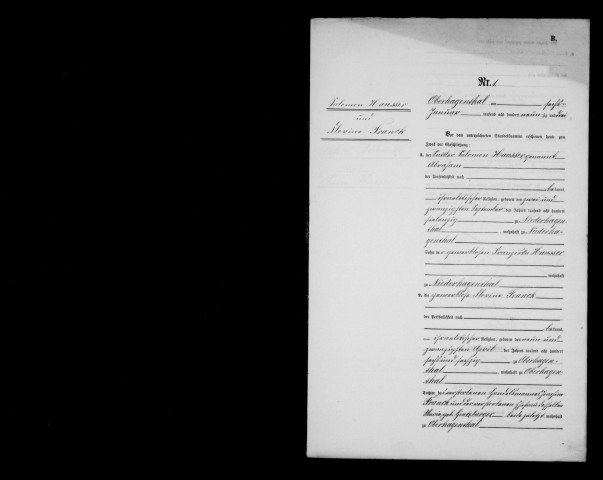 B.
Nr. 1.
Salomon Hausser
und
Flevina Franck
Oberhagenthal am
Januar tausend acht hundert neunzig und
Vor dem unterzeichneten Standesbeamten erschienen heute zum
Zweck der Eheschließung:
1. der Sattler Salomon Hausser genannt
Abraham
der Persönlichkeit nach
kannt,
israelitischer Religion, geboren den zwei und
zwanzigsten September des Jahres tausend acht hundert
siebenzig zu Niederhagen-
thal, wohnhaft zu Niederha-
genthal
Sohn der gewerblosen Franziska Hausser
wohnhaft
zu Niederhagenthal
2. die gewerblose Flevina Franck
der Persönlichkeit nach
kannt,
israelitischer Religion, geboren den neun und
zwanzigsten April des Jahres tausend acht hundert
sechs und sechzig zu Oberhagen-
thal, wohnhaft zu Oberhagen
thal
Tochter des verstorbenen Handelsmanns
Franck und der verstorbenen Ehefrau desselben
Maria geb. Gintzburger beide zuletzt wohnhaft
zu Oberhagenthal